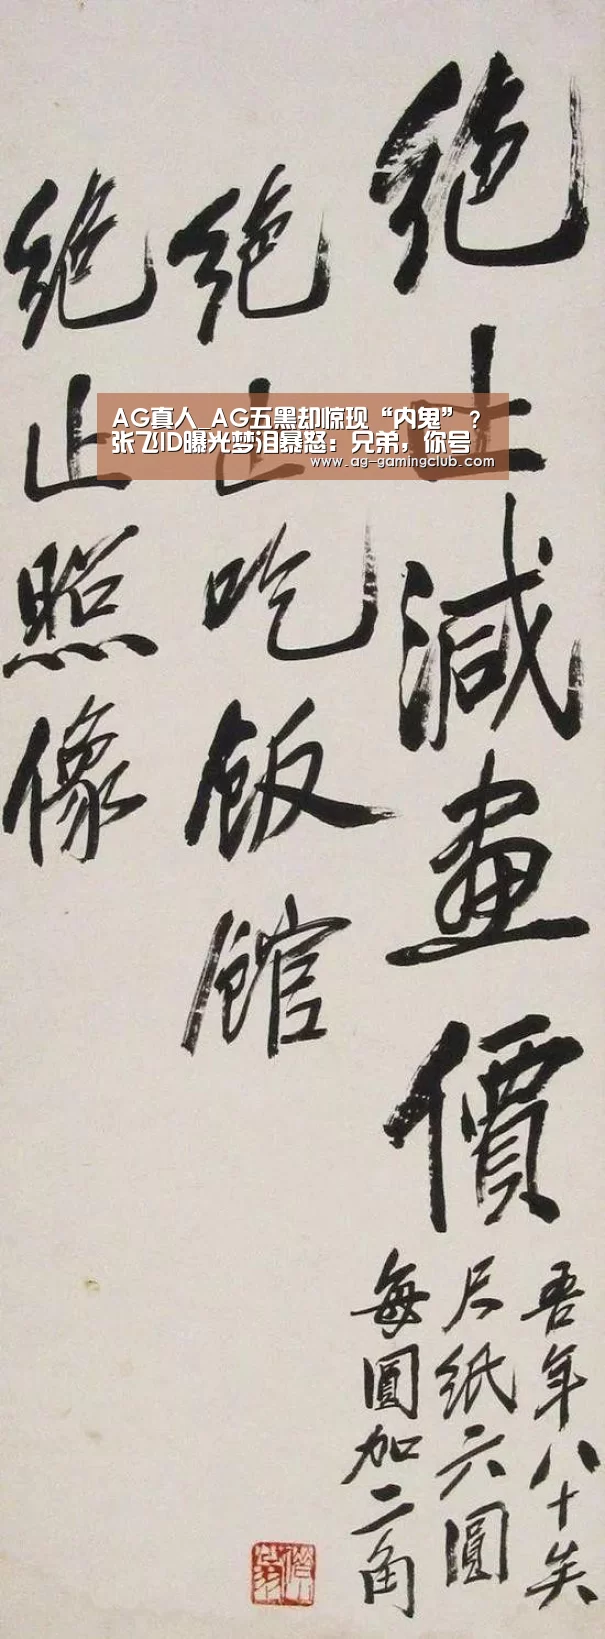 绝止減畫價
吾年八十矣
尺纸六圓
每圓加二角
绝止吃飯館
绝止照像
AG真人_AG五黑却惊现“内鬼”？
张飞ID曝光梦泪暴怒：兄弟，你号
www.ag-gamingclub.com